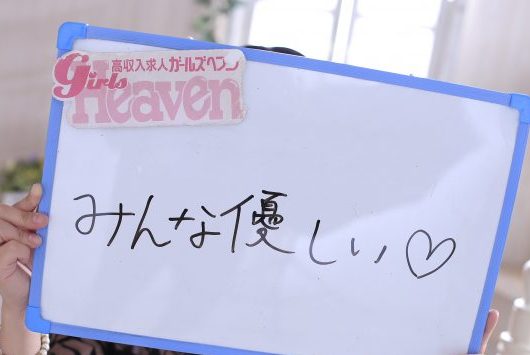 高収入求人ガールズヘブン
Girls
Heaven
みんな優しい♡